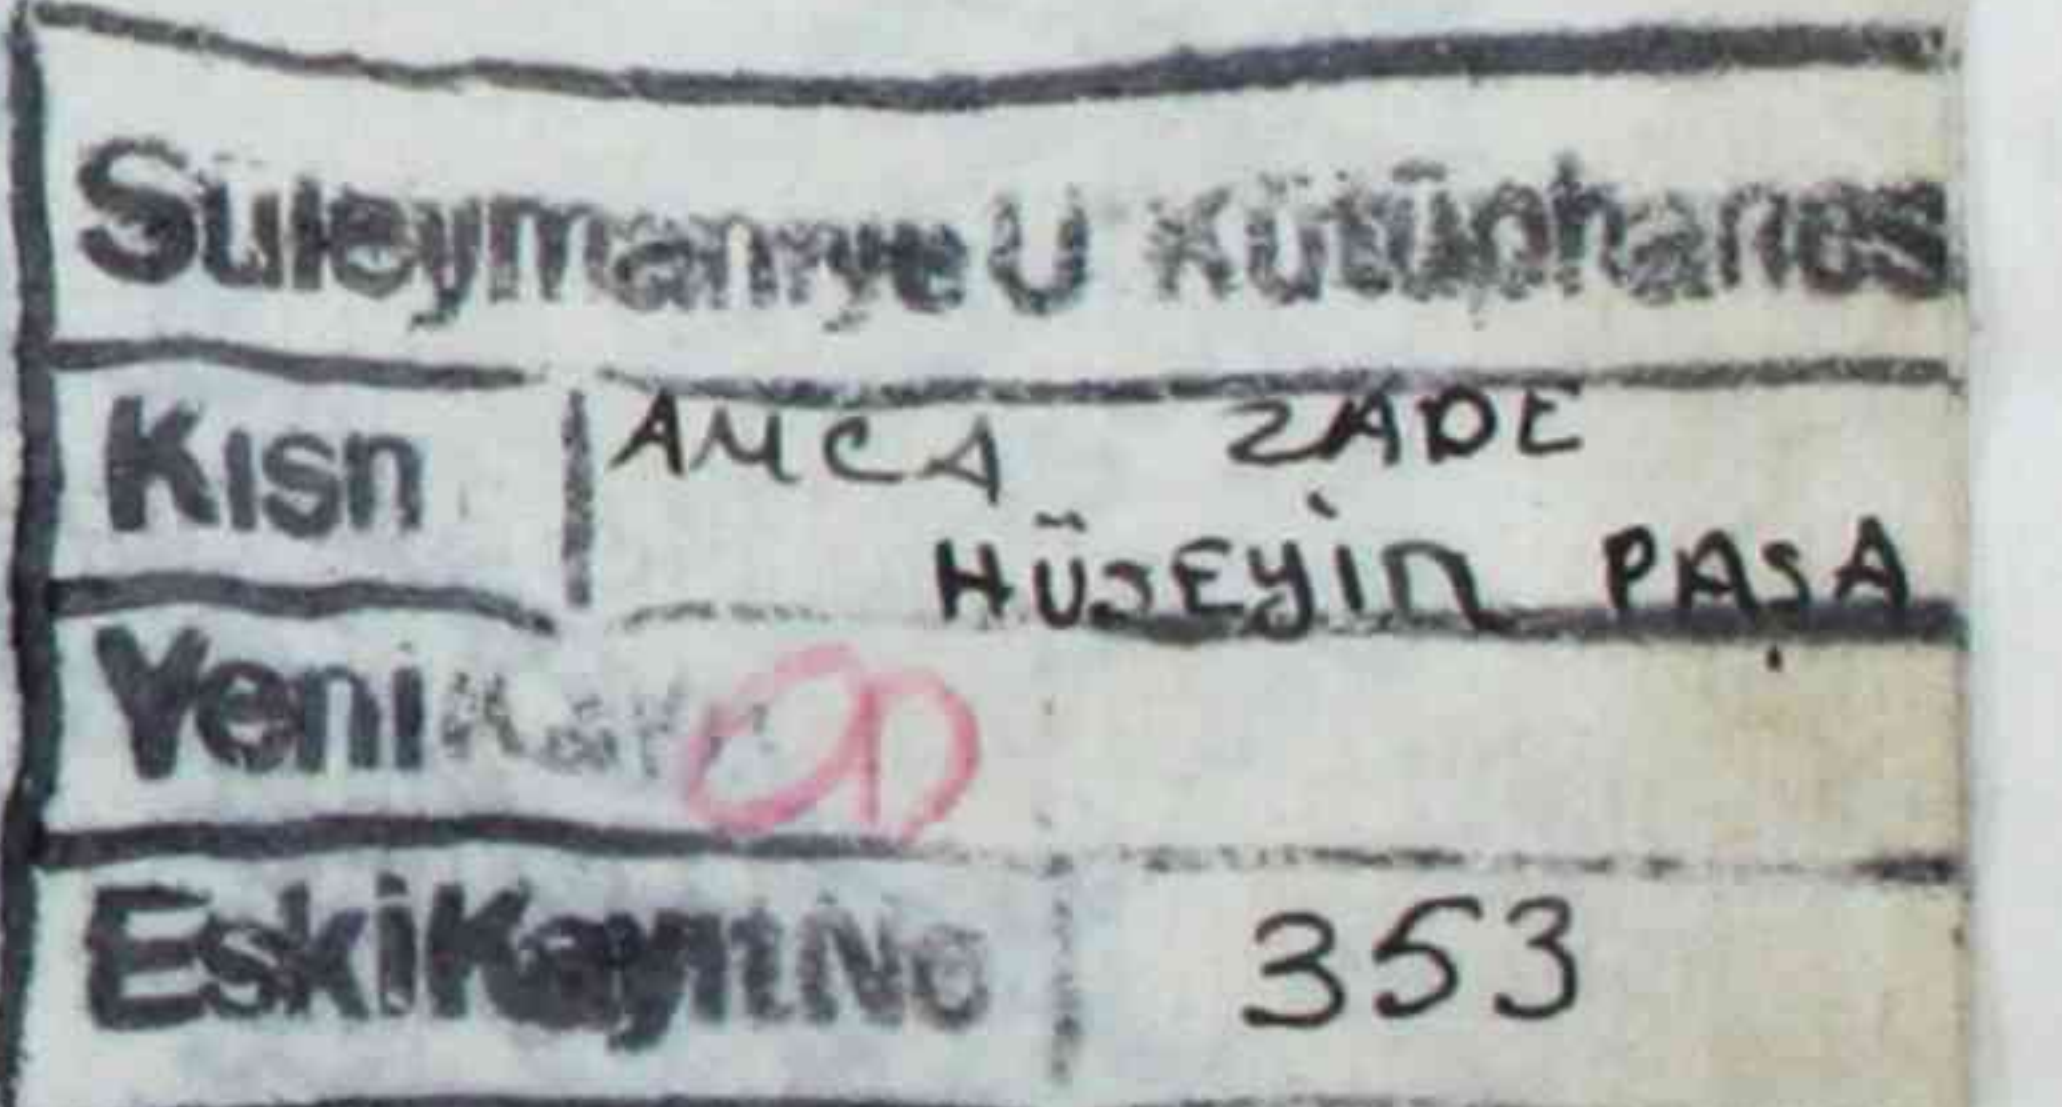 Süleymaniye U Kütüphanes
Kısn AMCA ZADE
HÜSEYİN PAŞA
Yeni
Eski Kayıt No 353